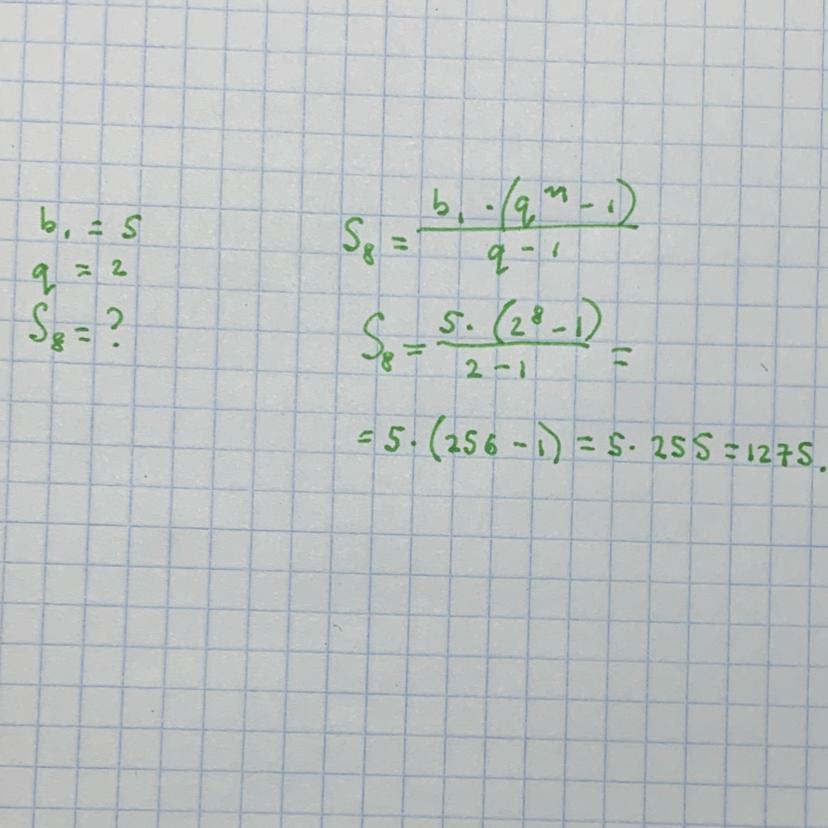 b₁ = 5
q = 2
S₈ = ?
S₈ = b₁ · (qⁿ - 1) / q - 1
S₈ = 5 · (2⁸ - 1) / 2 - 1 =
= 5 · (256 - 1) = 5 · 255 = 1275.